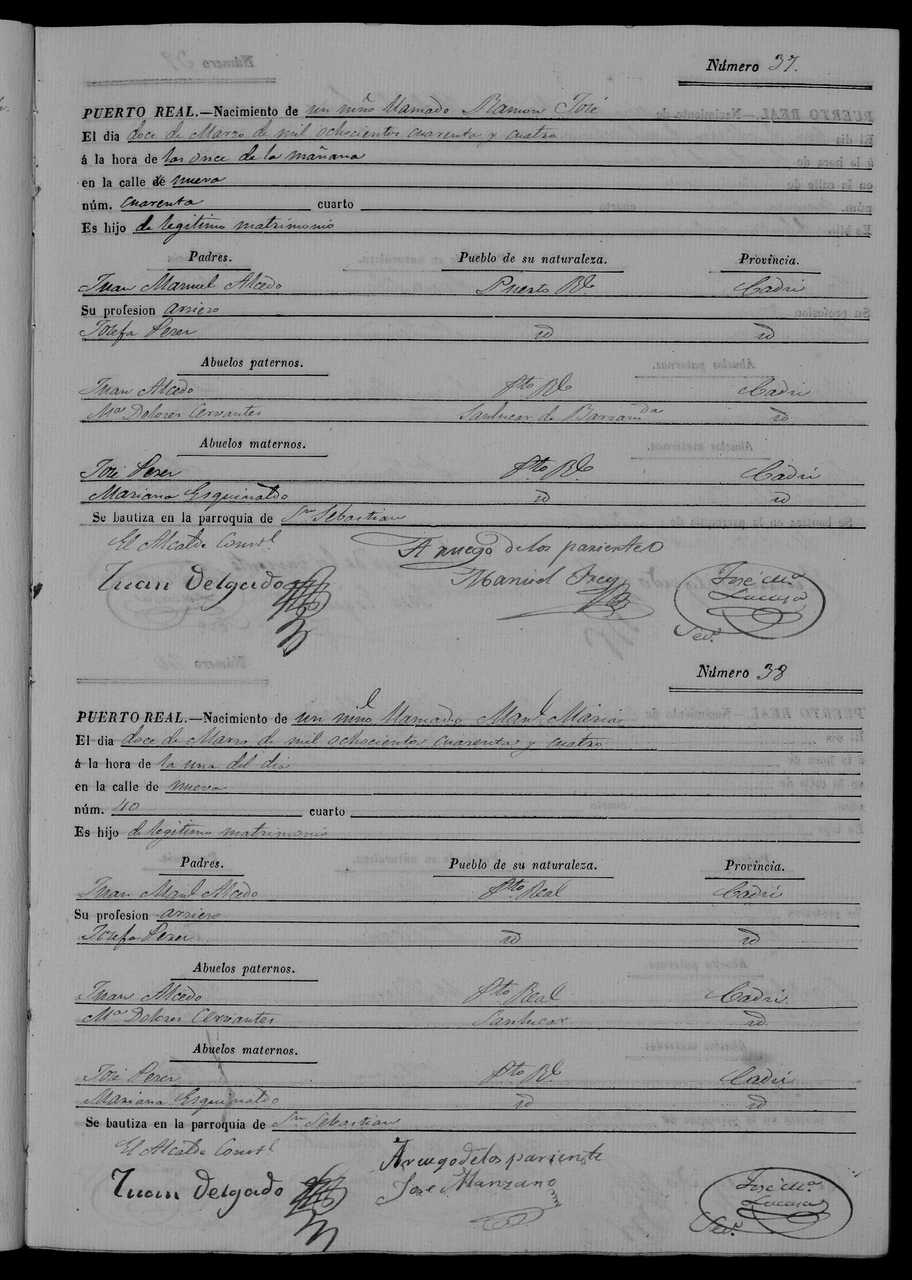 Número 37.
PUERTO REAL.—Nacimiento de un niño llamado Ramon José
El dia doce de Marzo de mil ochocientos cuarenta y cuatro
á la hora de las once de la mañana
en la calle de nueva
núm. cuarenta cuarto
Es hijo de legitimo matrimonio
Padres. Pueblo de su naturaleza. Provincia.
Juan Manuel Alcedo Puerto Rl. Cadiz
Su profesion arriero
Josefa Perez id id
Abuelos paternos.
Juan Alcedo Pto. Rl. Cadiz
Ma. Dolores Cervantes Sanlucar de Barramda id
Abuelos maternos.
José Perez Pto. Rl. Cadiz
Mariana Esquinaldo id id
Se bautiza en la parroquia de Sn. Sebastian
El Alcalde Constl. A ruego de los parientes
Juan Delgado Manuel José Ma.
Secº.
Número 38
PUERTO REAL.—Nacimiento de un niño llamado Manl. Maria
El dia doce de Marzo de mil ochocientos cuarenta y cuatro
á la hora de la una del dia
en la calle de nueva
núm. 40 cuarto
Es hijo de legitimo matrimonio
Padres. Pueblo de su naturaleza. Provincia.
Juan Manl. Alcedo Pto. Real Cadiz
Su profesion arriero
Josefa Perez id id
Abuelos paternos.
Juan Alcedo Pto. Real Cadiz
Ma. Dolores Cervantes Sanlucar id
Abuelos maternos.
José Perez Pto. Rl. Cadiz
Mariana Esquinaldo id id
Se bautiza en la parroquia de Sn. Sebastian
El Alcalde Constl. A ruego de los parientes
Juan Delgado José Manzano José Ma.
Secº.